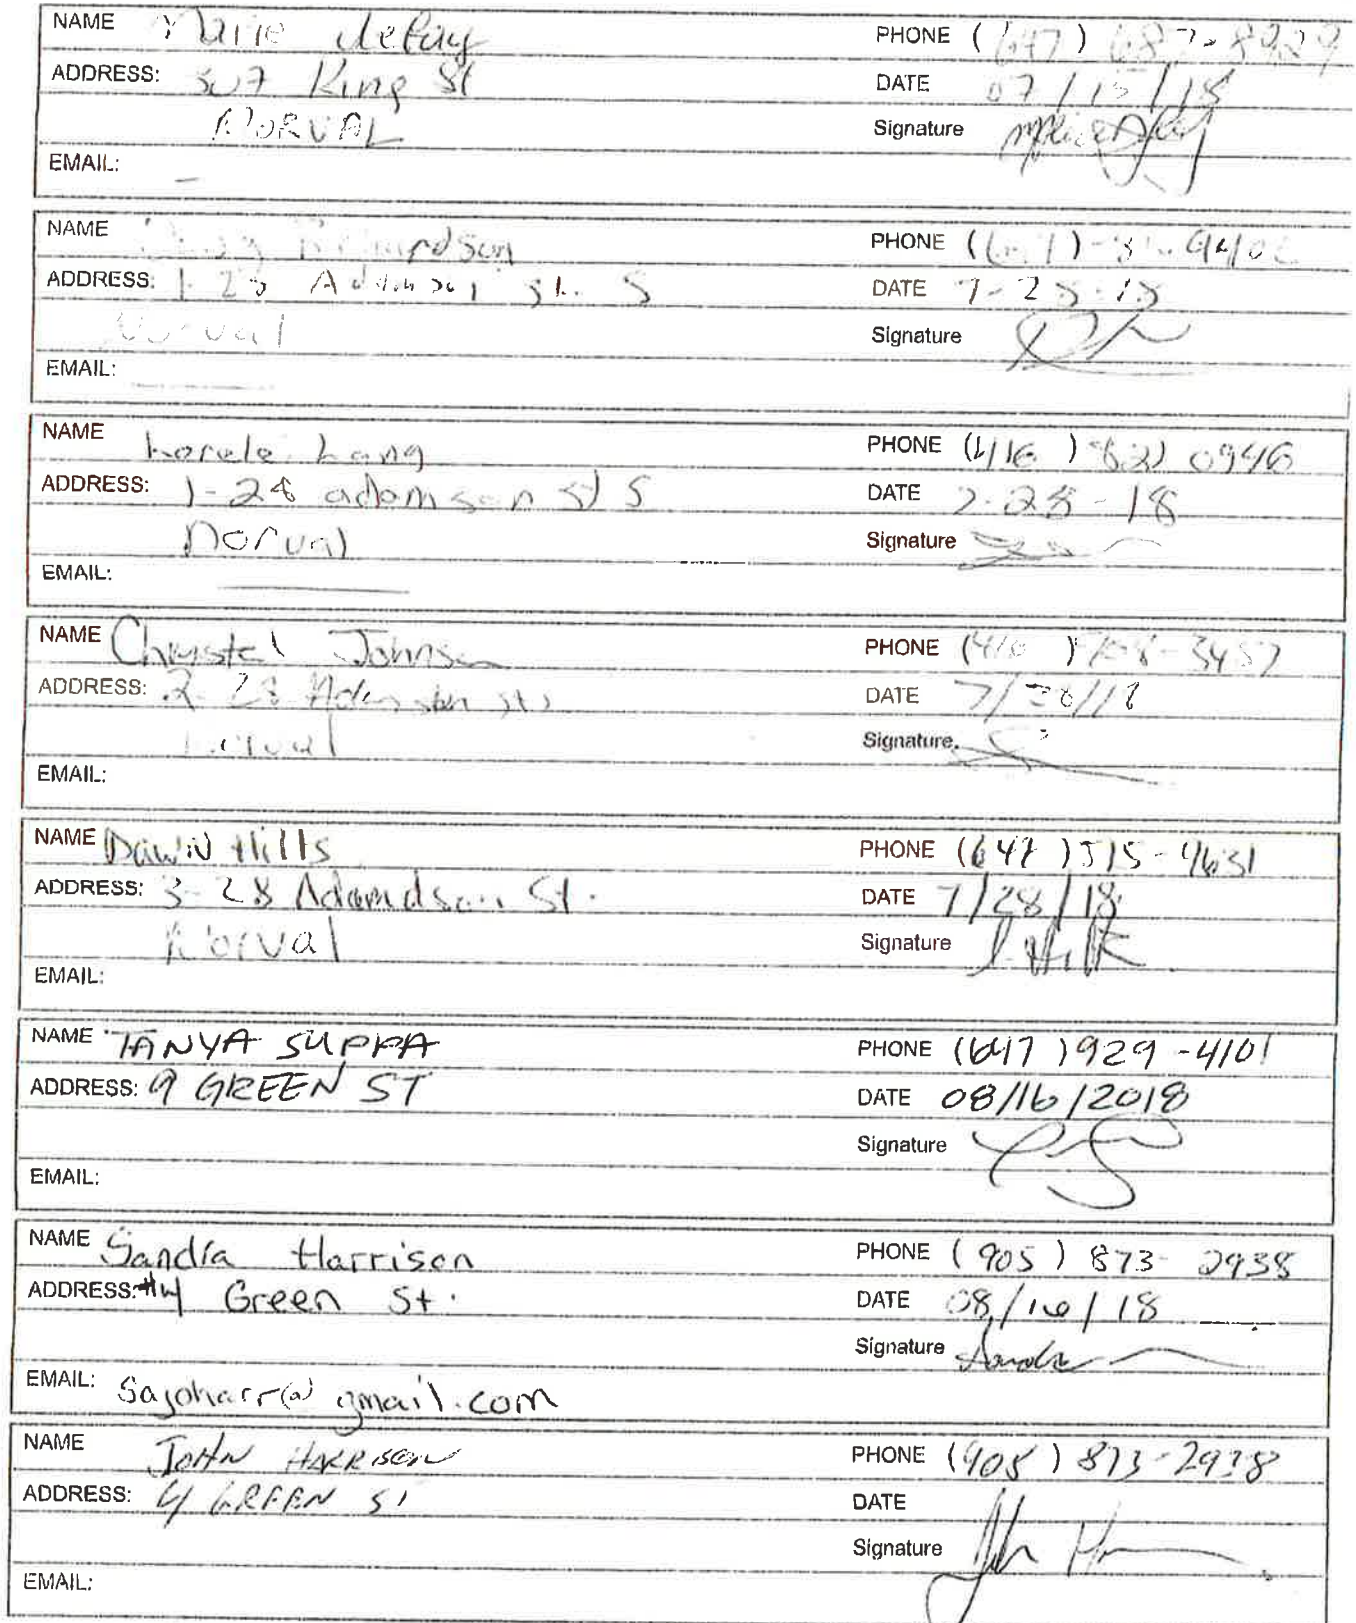 NAME Marie PHONE (647) 687-8929
ADDRESS: 307 King St DATE 07/15/18
NORVAL Signature
EMAIL: -
NAME Richardson PHONE
ADDRESS: 1-28 Adamson St. S DATE 7-28-18
Norval Signature
EMAIL:
NAME Lorele Lang PHONE (416) 821 0946
ADDRESS: 1-28 adamson St S DATE 7-28-18
Norval Signature
EMAIL:
NAME Christel Johnson PHONE (416)
ADDRESS: 2-28 Adamson St S DATE 7/28/18
Norval Signature
EMAIL:
NAME Dawn Hills PHONE (647) 515-4631
ADDRESS: 3-28 Adamdson St. DATE 7/28/18
Norval Signature
EMAIL:
NAME TANYA SUPPA PHONE (647) 929-4101
ADDRESS: 9 GREEN ST DATE 08/16/2018
Signature
EMAIL:
NAME Sandra Harrison PHONE (905) 873-2938
ADDRESS: #4 Green St. DATE 08/16/18
Signature Sandra
EMAIL: sajoharr@gmail.com
NAME JOHN HARRISON PHONE (905) 873-2938
ADDRESS: 4 GREEN ST DATE
Signature John
EMAIL: